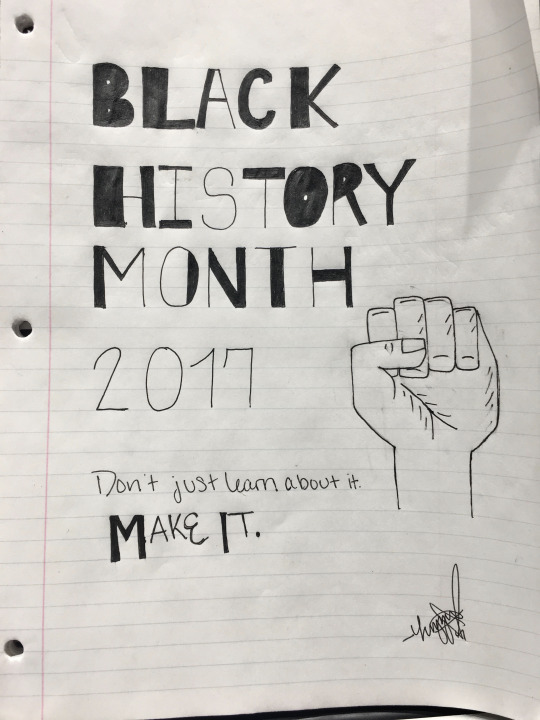 BLACK
HISTORY
MONTH
2017
Don't just learn about it.
MAKE IT.